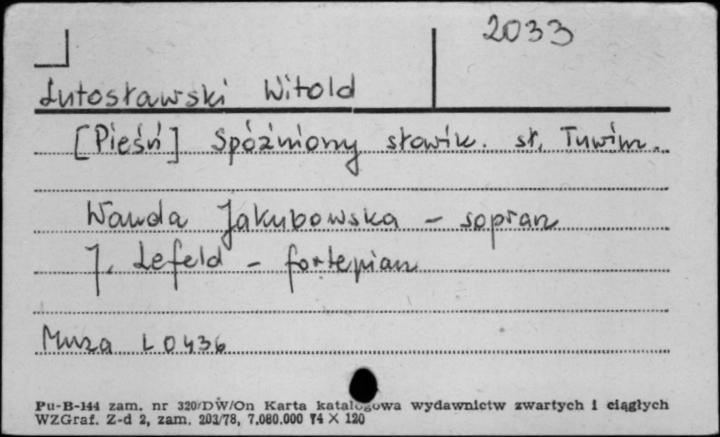 2033
Lutosławski Witold
[Pieśń] Spóźniony słowik. sł. Tuwim.
Wanda Jakubowska – sopran
J. Lefeld – fortepian
Muza L 0436
Pu-B-144 zam. nr 320/DW/On Karta katalogowa wydawnictw zwartych i ciągłych
WZGraf. Z-d 2, zam. 203/78, 7.080.000 74 X 120